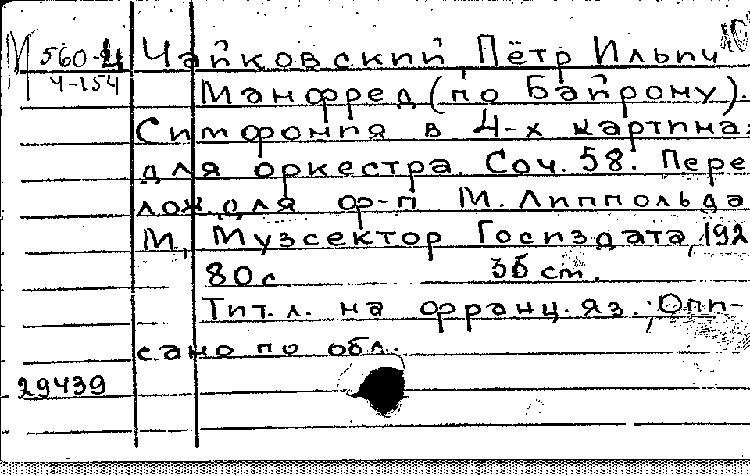 М 560-4 Чайковский, Пётр Ильич
Ч-154 Манфред (по Байрону).
Симфония в 4-х картина
для оркестра. Соч. 58. Пере
лож. для ф-п М. Липпольда
М, Музсектор Госиздата, 192
80 с 35 cm.
Тит. л. на франц. яз.; Опи-
сано по обл.
29439